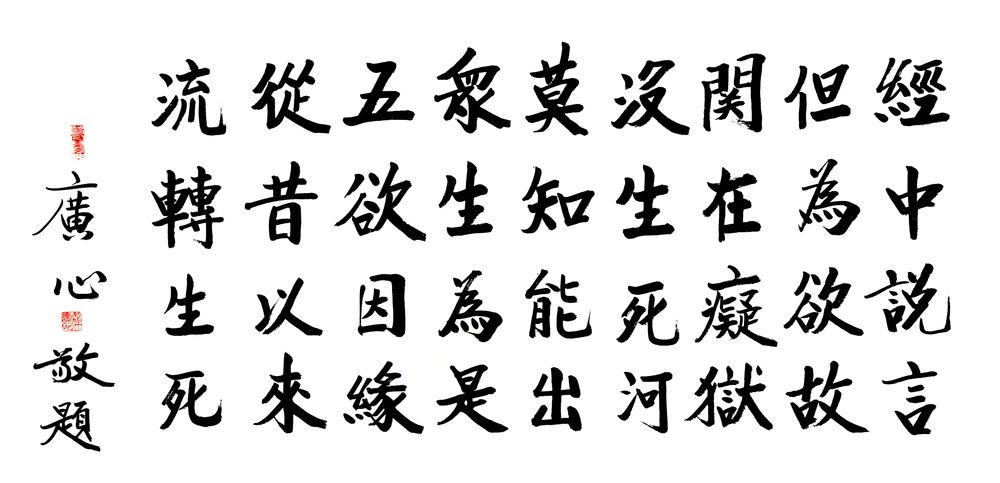 經中說言
但為欲故
関在癡獄
沒生死河
莫知能出
眾生為是
五欲因緣
從昔以來
流轉生死
廣心敬題